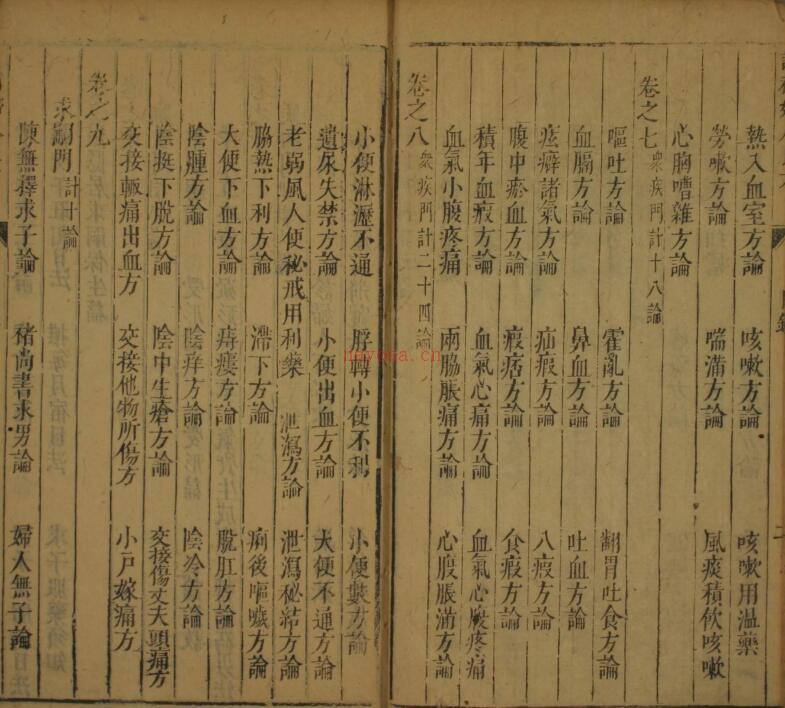 熱入血室方論 咳嗽方論 咳嗽用溫藥
勞嗽方論 喘滿方論 風痰積飲咳嗽
心胸嘈雜方論
卷之七 衆疾門計十八論
嘔吐方論 霍亂方論 翻胃吐食方論
血膈方論 鼻血方論 吐血方論
痃癖諸氣方論 疝瘕方論 八瘕方論
腹中瘀血方論 瘕痞方論 食瘕方論
積年血瘕方論 血氣心痛方論 血氣心腹疼痛
血氣小腹疼痛 兩脇脹痛方論 心腹脹滿方論
卷之八 衆疾門計二十四論
小便淋瀝不通 脬轉小便不利 小便數方論
遺尿失禁方論 小便出血方論 大便不通方論
老弱風人便秘戒用利藥 泄瀉方論 泄瀉秘結方論
脇熱下利方論 滯下方論 痢後嘔噦方論
大便下血方論 痔瘻方論 脫肛方論
陰腫方論 陰痒方論 陰冷方論
陰挺下脫方論 陰中生瘡方論 交接傷丈夫頭痛方
交接輒痛出血方 交接他物所傷方 小戶嫁痛方
卷之九
求嗣門 計十論
陳無擇求子論 褚尚書求男論 婦人無子論
mayona.cn